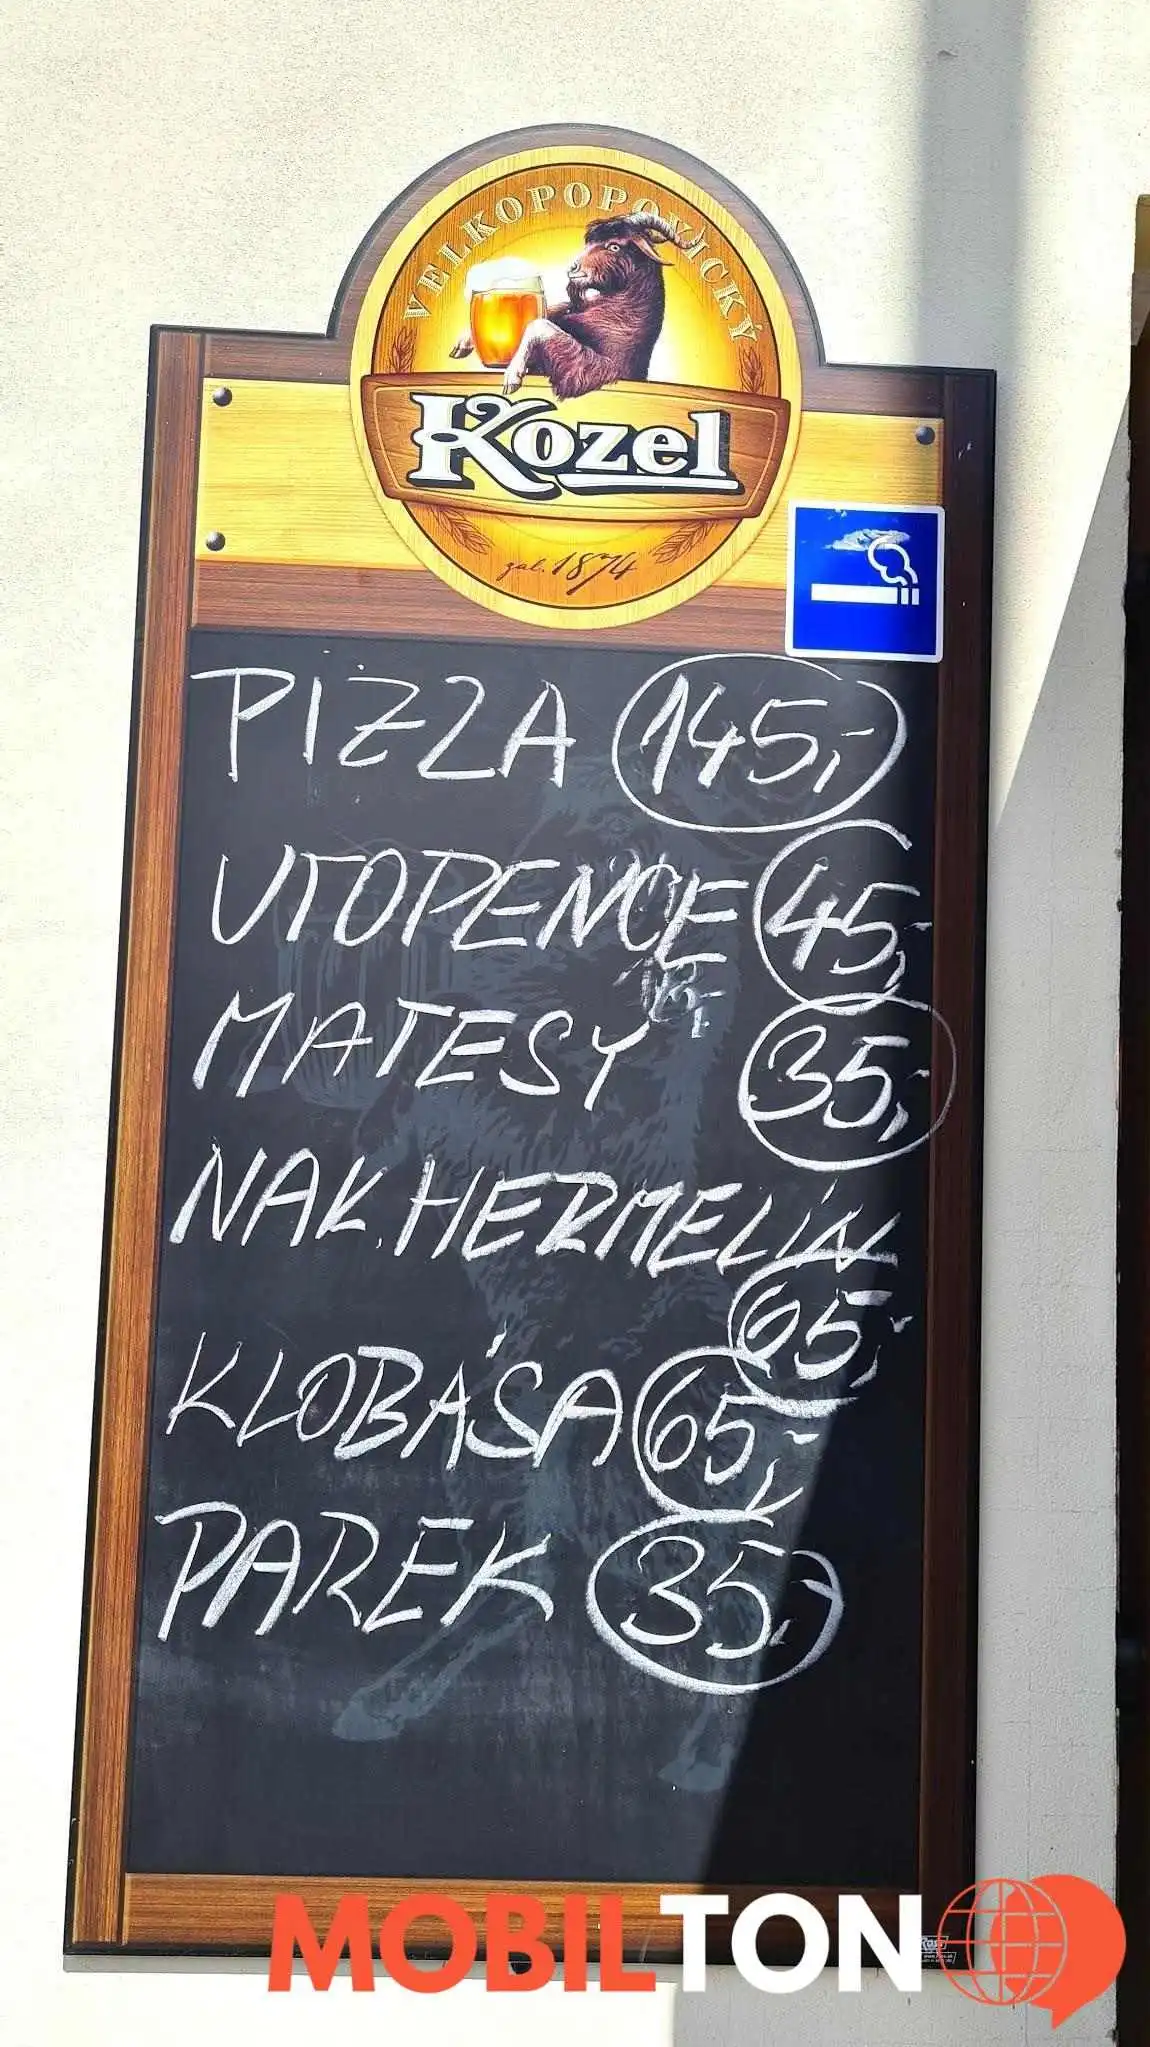 VELKOPOPOVICKÝ
Kozel
zal. 1874
PIZZA 145,-
UTOPENCE 45,-
MATESY 35,-
NAK. HERMELÍN
65,-
KLOBÁSA 65,-
PAREK 35,-
MOBILTON